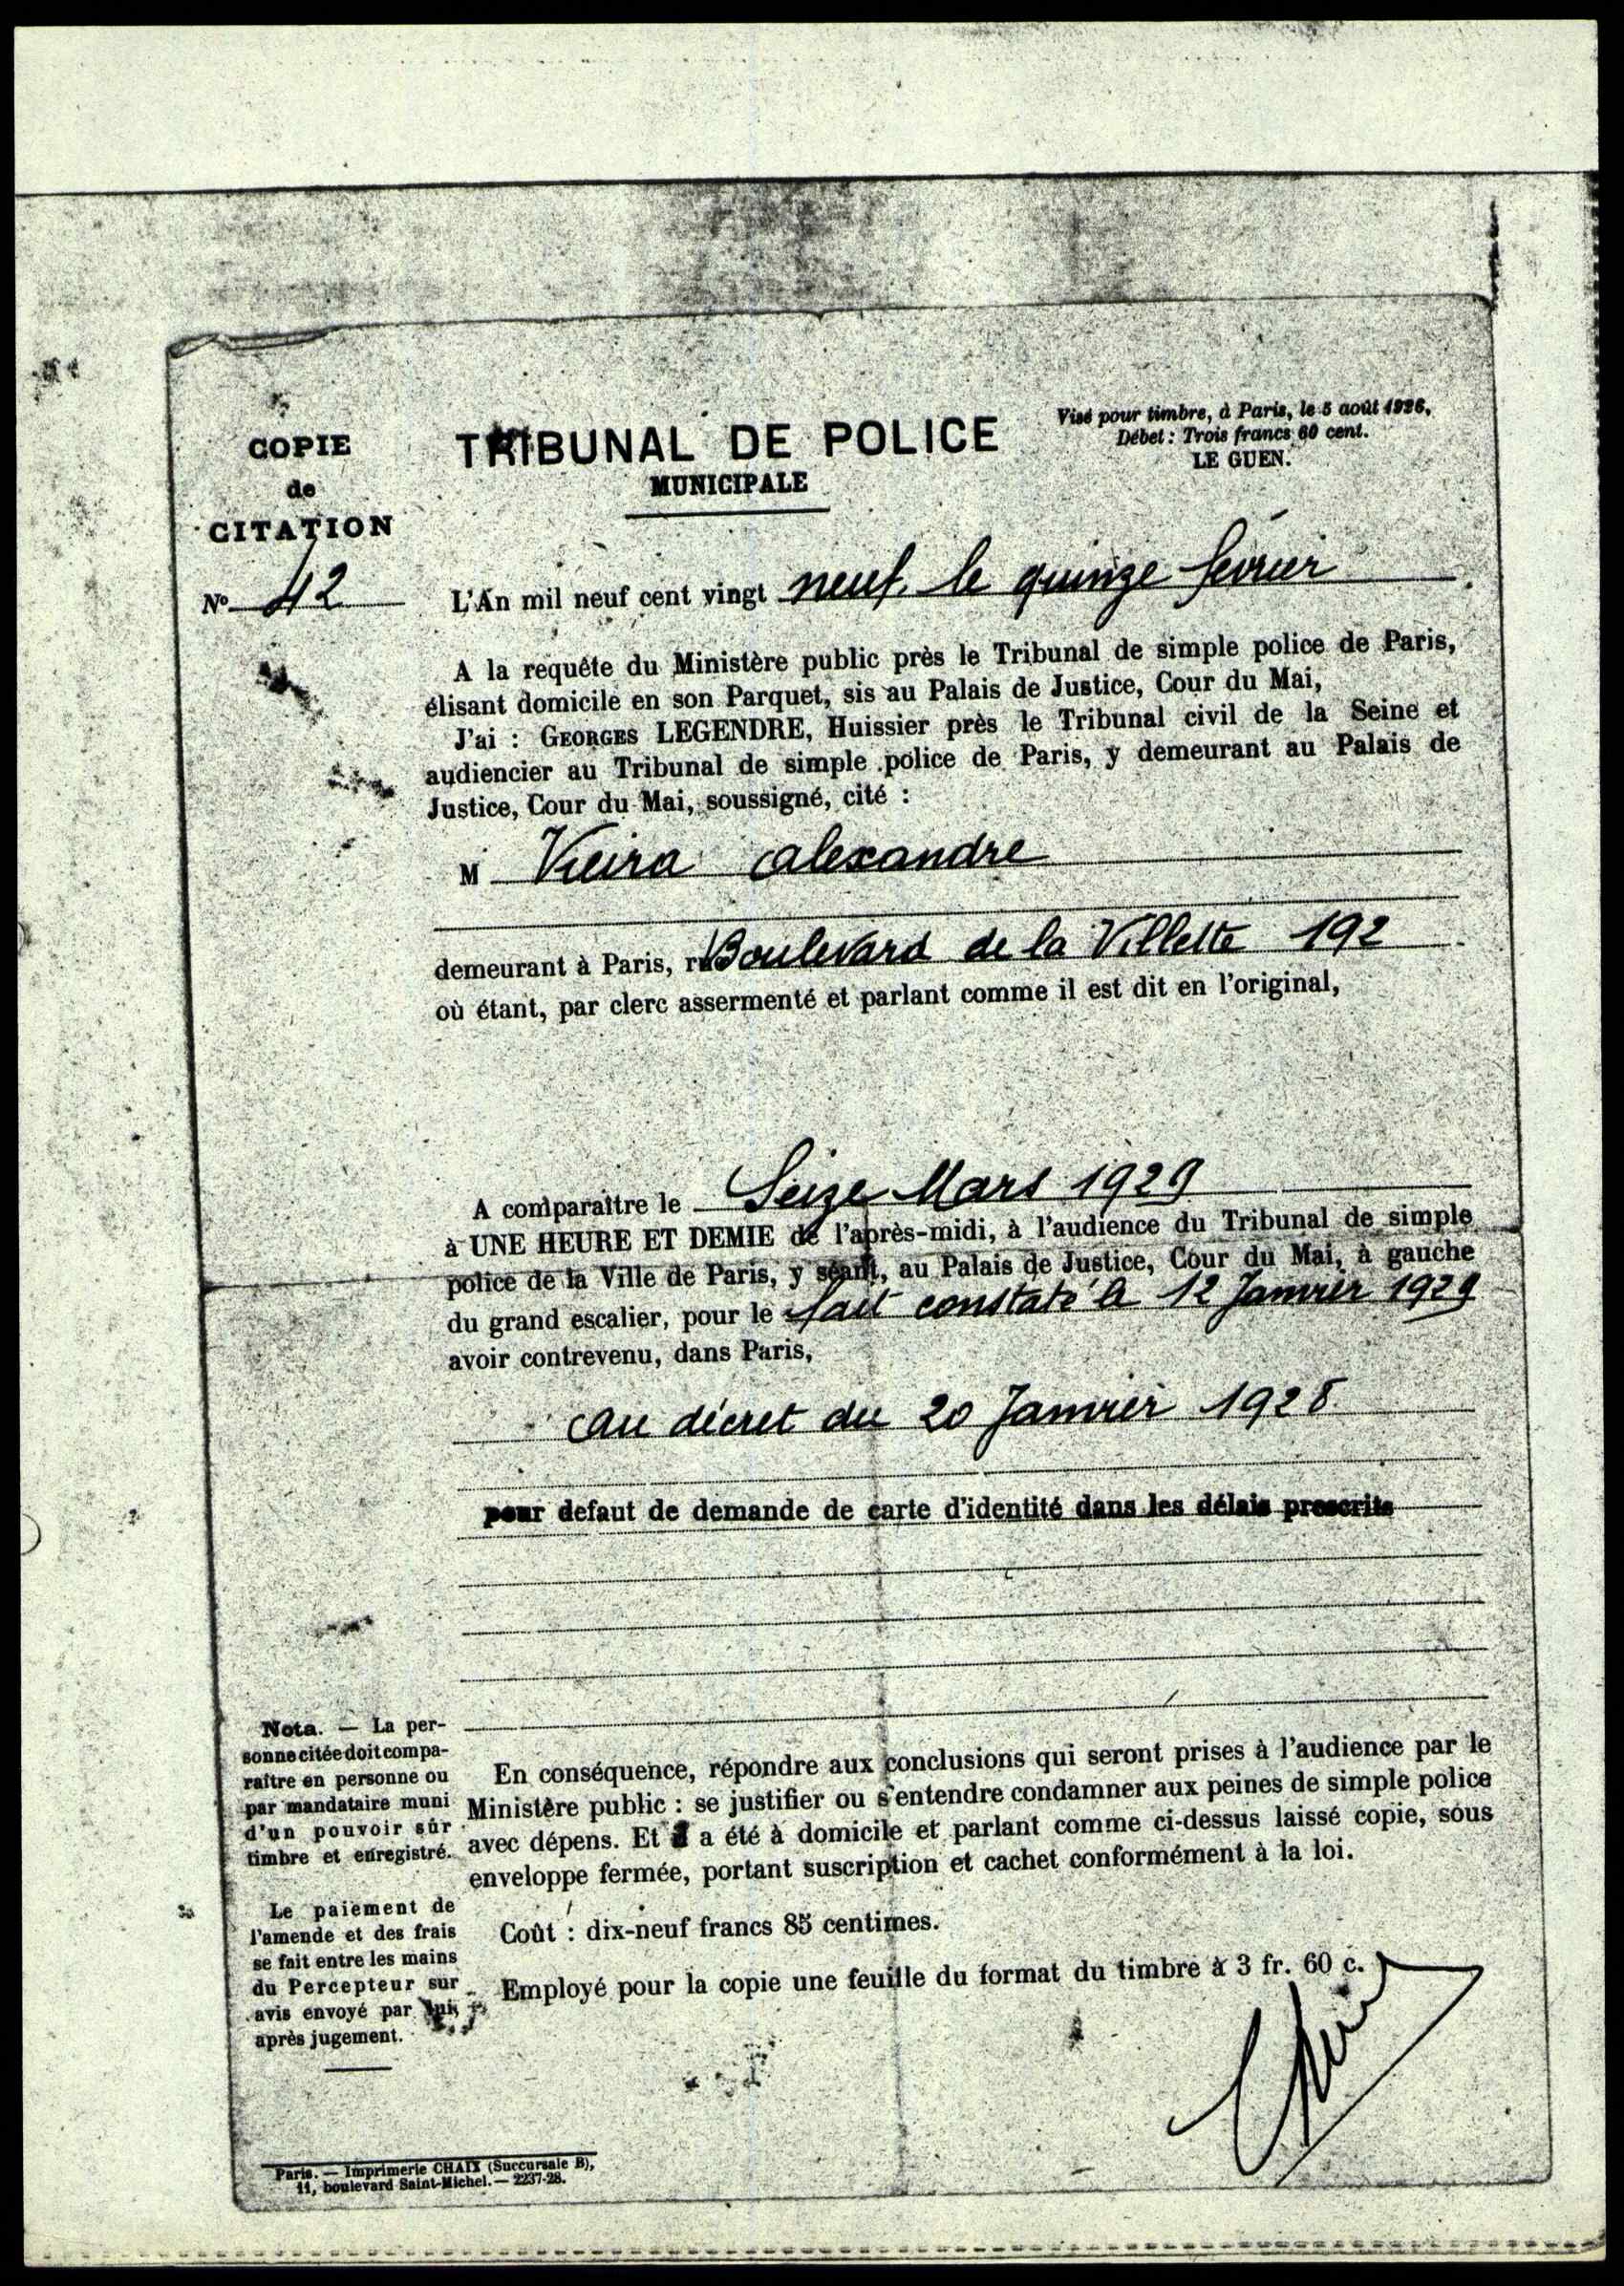 COPIE
de
CITATION
No 42
TRIBUNAL DE POLICE
MUNICIPALE
Visé pour timbre, à Paris, le 5 août 1926,
Débet : Trois francs 60 cent.
LE GUEN.
L'An mil neuf cent vingt neuf, le quinze février
A la requête du Ministère public près le Tribunal de simple police de Paris,
élisant domicile en son Parquet, sis au Palais de Justice, Cour du Mai,
J'ai : GEORGES LEGENDRE, Huissier près le Tribunal civil de la Seine et
audiencier au Tribunal de simple police de Paris, y demeurant au Palais de
Justice, Cour du Mai, soussigné, cité :
M Vieira Alexandre
demeurant à Paris, ru Boulevard de la Villette 192
où étant, par clerc assermenté et parlant comme il est dit en l'original,
A comparaître le Seize Mars 1929
à UNE HEURE ET DEMIE de l'après-midi, à l'audience du Tribunal de simple
police de la Ville de Paris, y séant, au Palais de Justice, Cour du Mai, à gauche
du grand escalier, pour le fait constaté le 12 Janvier 1929
avoir contrevenu, dans Paris,
au décret du 20 Janvier 1928
pour defaut de demande de carte d'identité dans les délais prescrits
Nota. — La per-
sonne citée doit compa-
raître en personne ou
par mandataire muni
d'un pouvoir sur
timbre et enregistré.
Le paiement de
l'amende et des frais
se fait entre les mains
du Percepteur sur
avis envoyé par lui,
après jugement.
En conséquence, répondre aux conclusions qui seront prises à l'audience par le
Ministère public : se justifier ou s'entendre condamner aux peines de simple police
avec dépens. Et a été à domicile et parlant comme ci-dessus laissé copie, sous
enveloppe fermée, portant suscription et cachet conformément à la loi.
Coût : dix-neuf francs 85 centimes.
Employé pour la copie une feuille du format du timbre à 3 fr. 60 c.
Paris. — Imprimerie CHAIX (Succursale B),
11, boulevard Saint-Michel. — 2237-28.